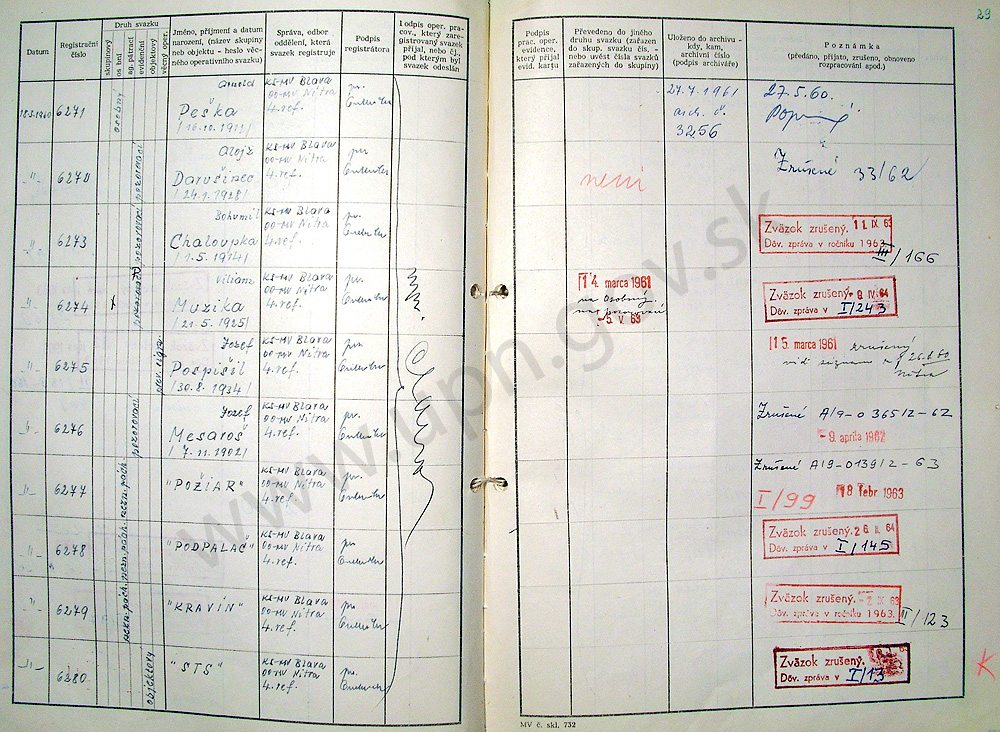 29
Datum
Registrační
číslo
Druh svazku
skupinový
osobní
ag. pátrací
evidenční
objektový
věcný oper.
Jméno, příjmení a datum
narození, (název skupiny
neb objektu - heslo věc-
ného operativního svazku)
Správa, odbor
oddělení, která
svazek registruje
Podpis
registrátora
Podpis oper. prac-
cov., který zare-
gistrovaný svazek
přijal, nebo čj.,
pod kterým byl
svazek odeslán
Podpis
prac. oper.
evidence,
který přijal
evid. kartu
Převedeno do jiného
druhu svazku (zařazen
do skup. svazku čís. -
nebo uvést čísla svazků
zařazených do skupiny)
Uloženo do archivu -
kdy, kam,
archivní číslo
(podpis archiváře)
Poznámka
(předáno, přijato, zrušeno, obnoveno
rozpracování apod.)
6271
osobný
Arnold
Peška
/16.10.1911/
KS-MV Blava
OO-MV Nitra
4. ref.
27.7.1961
arch. č.
3256
27.5.60.
-"-
6272
pozorovací
Alojz
Darušinec
/24.1.1928/
KS-MV Blava
OO-MV Nitra
4. ref.
není
Zrušené 33/62
-"-
6273
pozorovací
Bohumil
Chaloupka
/1.5.1914/
KS-MV Blava
OO-MV Nitra
4. ref.
Zväzok zrušený. 11. IX. 63
Dôv. zpráva v ročníku 1963
III/166
-"-
6274
x
Viliam
Muzika
/21.5.1925/
KS-MV Blava
OO-MV Nitra
4. ref.
14. marca 1961
na osobný.
-5. V. 63
Zväzok zrušený. -9. IV. 64
Dôv. zpráva v I/243
-"-
6275
Jozef
Pospíšil
/30.8.1934/
KS-MV Blava
OO-MV Nitra
4. ref.
15. marca 1961 zrušený
Nitra
6276
pozorovací
Jozef
Mesároš
/7.11.1902/
KS-MV Blava
OO-MV Nitra
4. ref.
Zrušené A/9-0365/2-62
-9. apríla 1962
-"-
6277
"POŽIAR"
KS-MV Blava
OO-MV Nitra
4. ref.
Zrušené A/9-0139/2-63
I/99
18 febr 1963
-"-
6278
"PODPALAČ"
KS-MV Blava
OO-MV Nitra
4. ref.
Zväzok zrušený. 26. II. 64
Dôv. zpráva v I/145
-"-
6279
"KRAVÍN"
KS-MV Blava
OO-MV Nitra
4. ref.
Zväzok zrušený. -2. IX. 63
Dôv. zpráva v ročníku 1963.
II/123
-"-
6280
objektový
"STS"
KS-MV Blava
OO-MV Nitra
4. ref.
Zväzok zrušený.
Dôv. zpráva v I/13
K
MV č. skl. 732
www.upn.gov.sk